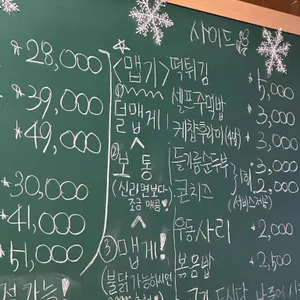 *28,000
*39,000
*49,000
*30,000
*41,000
*51,000
<맵기>
① 덜맵게
② 보통
(신라면보다
조금 매콤)
③ 맵게!
사이드
떡튀김 5,000
셀프주먹밥 3,000
케찹후라이(4개) 3,000
들기름순두부 3,000
콘치즈 2,000
우동사리 *2,000
볶음밥 2,500